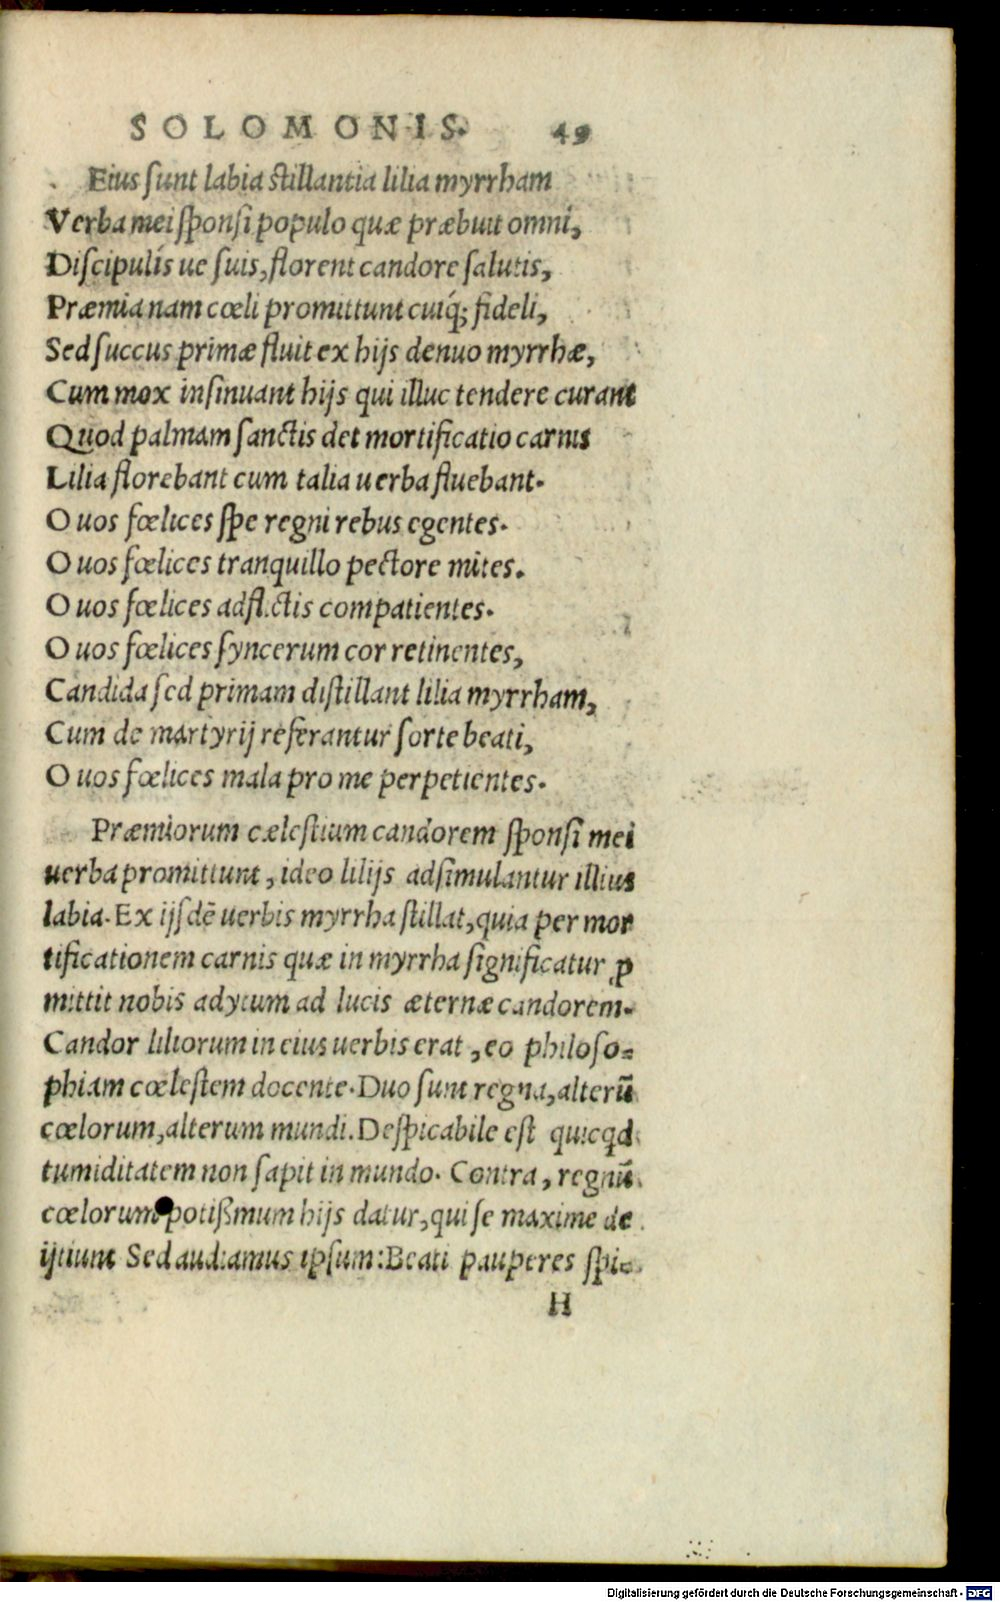 SOLOMONIS. 49
Eius sunt labia stillantia lilia myrrham
Verba mei sponsi populo quæ præbuit omni,
Discipulís ue suis, florent candore salutis,
Præmia nam cœli promittunt cuiq́; fideli,
Sed succus primæ fluit ex hijs denuo myrrhæ,
Cum mox insinuant hijs qui illuc tendere curant
Quod palmam sanctis det mortificatio carnis
Lilia florebant cum talia uerba fluebant.
O uos fœlices spe regni rebus egentes.
O uos fœlices tranquillo pectore mites.
O uos fœlices adflictis compatientes.
O uos fœlices syncerum cor retinentes,
Candida sed primam distillant lilia myrrham,
Cum de martyrij referantur sorte beati,
O uos fœlices mala pro me perpetientes.
Præmiorum cælestium candorem sponsi mei
uerba promittunt, ideo lilijs adsimulantur illius
labia. Ex ijsdē uerbis myrrha stillat, quia per mor
tificationem carnis quæ in myrrha significatur ꝓ
mittit nobis adytum ad lucis æternæ candorem.
Candor liliorum in eius uerbis erat, eo philoso=
phiam cœlestem docente. Duo sunt regna, alterū
cœlorum, alterum mundi. Despicabile est quicqd
tumiditatem non sapit in mundo. Contra, regnū
cœlorum potißmum hijs datur, qui se maxime de
ijtiunt Sed audiamus ipsum: Beati pauperes spi=
H
Digitalisierung gefördert durch die Deutsche Forschungsgemeinschaft - DFG